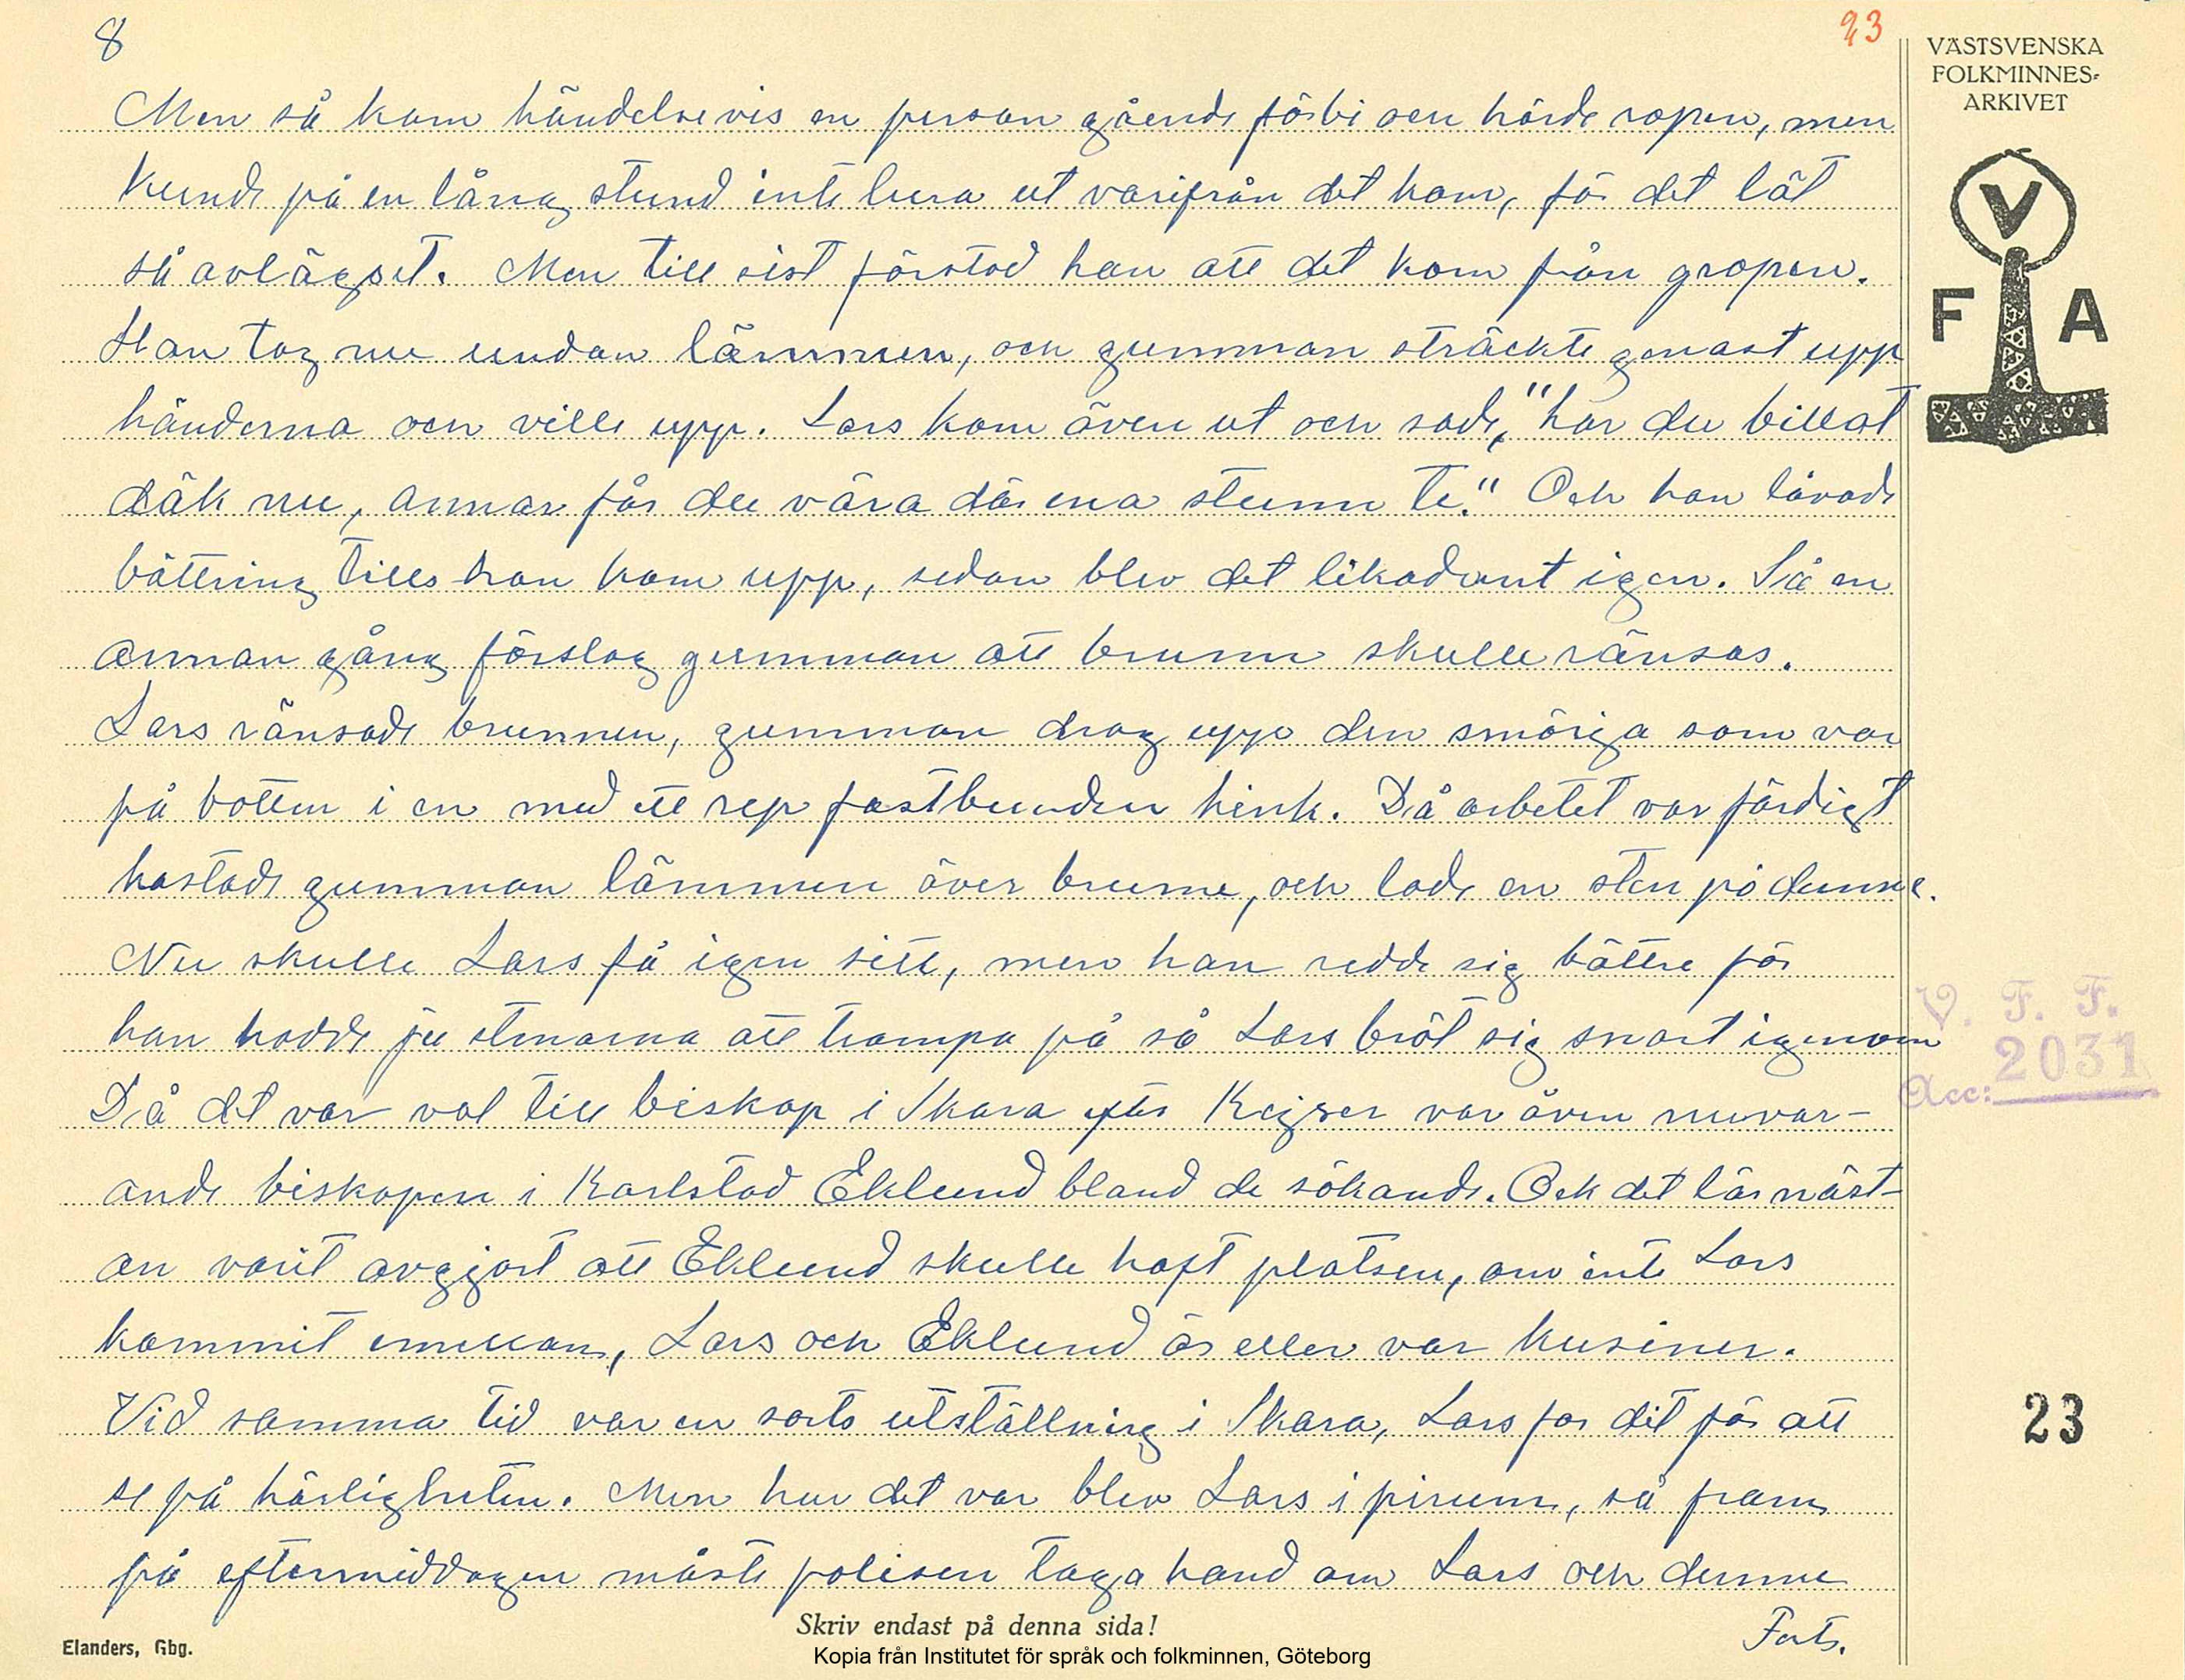 8
23
VÄSTSVENSKA
FOLKMINNES-
ARKIVET
V
F A
Men så kom händelsevis en person gående förbi och hörde ropen, men
kunde på en lång stund inte lura ut varifrån det kom, för det lät
så avlägset. Men till sist förstod han att det kom från gropen.
Han tog nu undan lämmen, och gumman sträckte genast upp
händerna och ville upp. Lars kom även ut och sade, "har du billat
däk nu, annars får du vara där ena stunn te." Och hon lovade
bättring tills hon kom upp, sedan blev det likadant igen. Så en
annan gång förslog gumman att brunn skulle ränsas.
Lars ränsade brunnen, gumman drog upp den smörja som var
på botten i en med ett rep fastbunden hink. Då arbetet var färdigt
hastade gumman lämmen över brunne, och lade en sten på denne.
Nu skulle Lars få igen sitt, men han redde sig bättre för
han hadde ju stenarna att trampa på så Lars bröt sig snart igenom
Då det var val till biskop i Skara efter Keijser var även nuvar-
ande biskopen i Karlstad Eklund bland de sökande. Och det lär näst-
an varit avgjort att Eklund skulle haft platsen, om inte Lars
kommit emellan, Lars och Eklund är eller var kusiner.
Vid samma tid var en sorts utställning i Skara, Lars for dit för att
se på härligheten. Men hur det var blev Lars i pirum, så fram
på eftermiddagen måste polisen taga hand om Lars och denne
Forts.
V. F. F.
Acc: 2031
23
Skriv endast på denna sida!
Elanders, Gbg.
Kopia från Institutet för språk och folkminnen, Göteborg